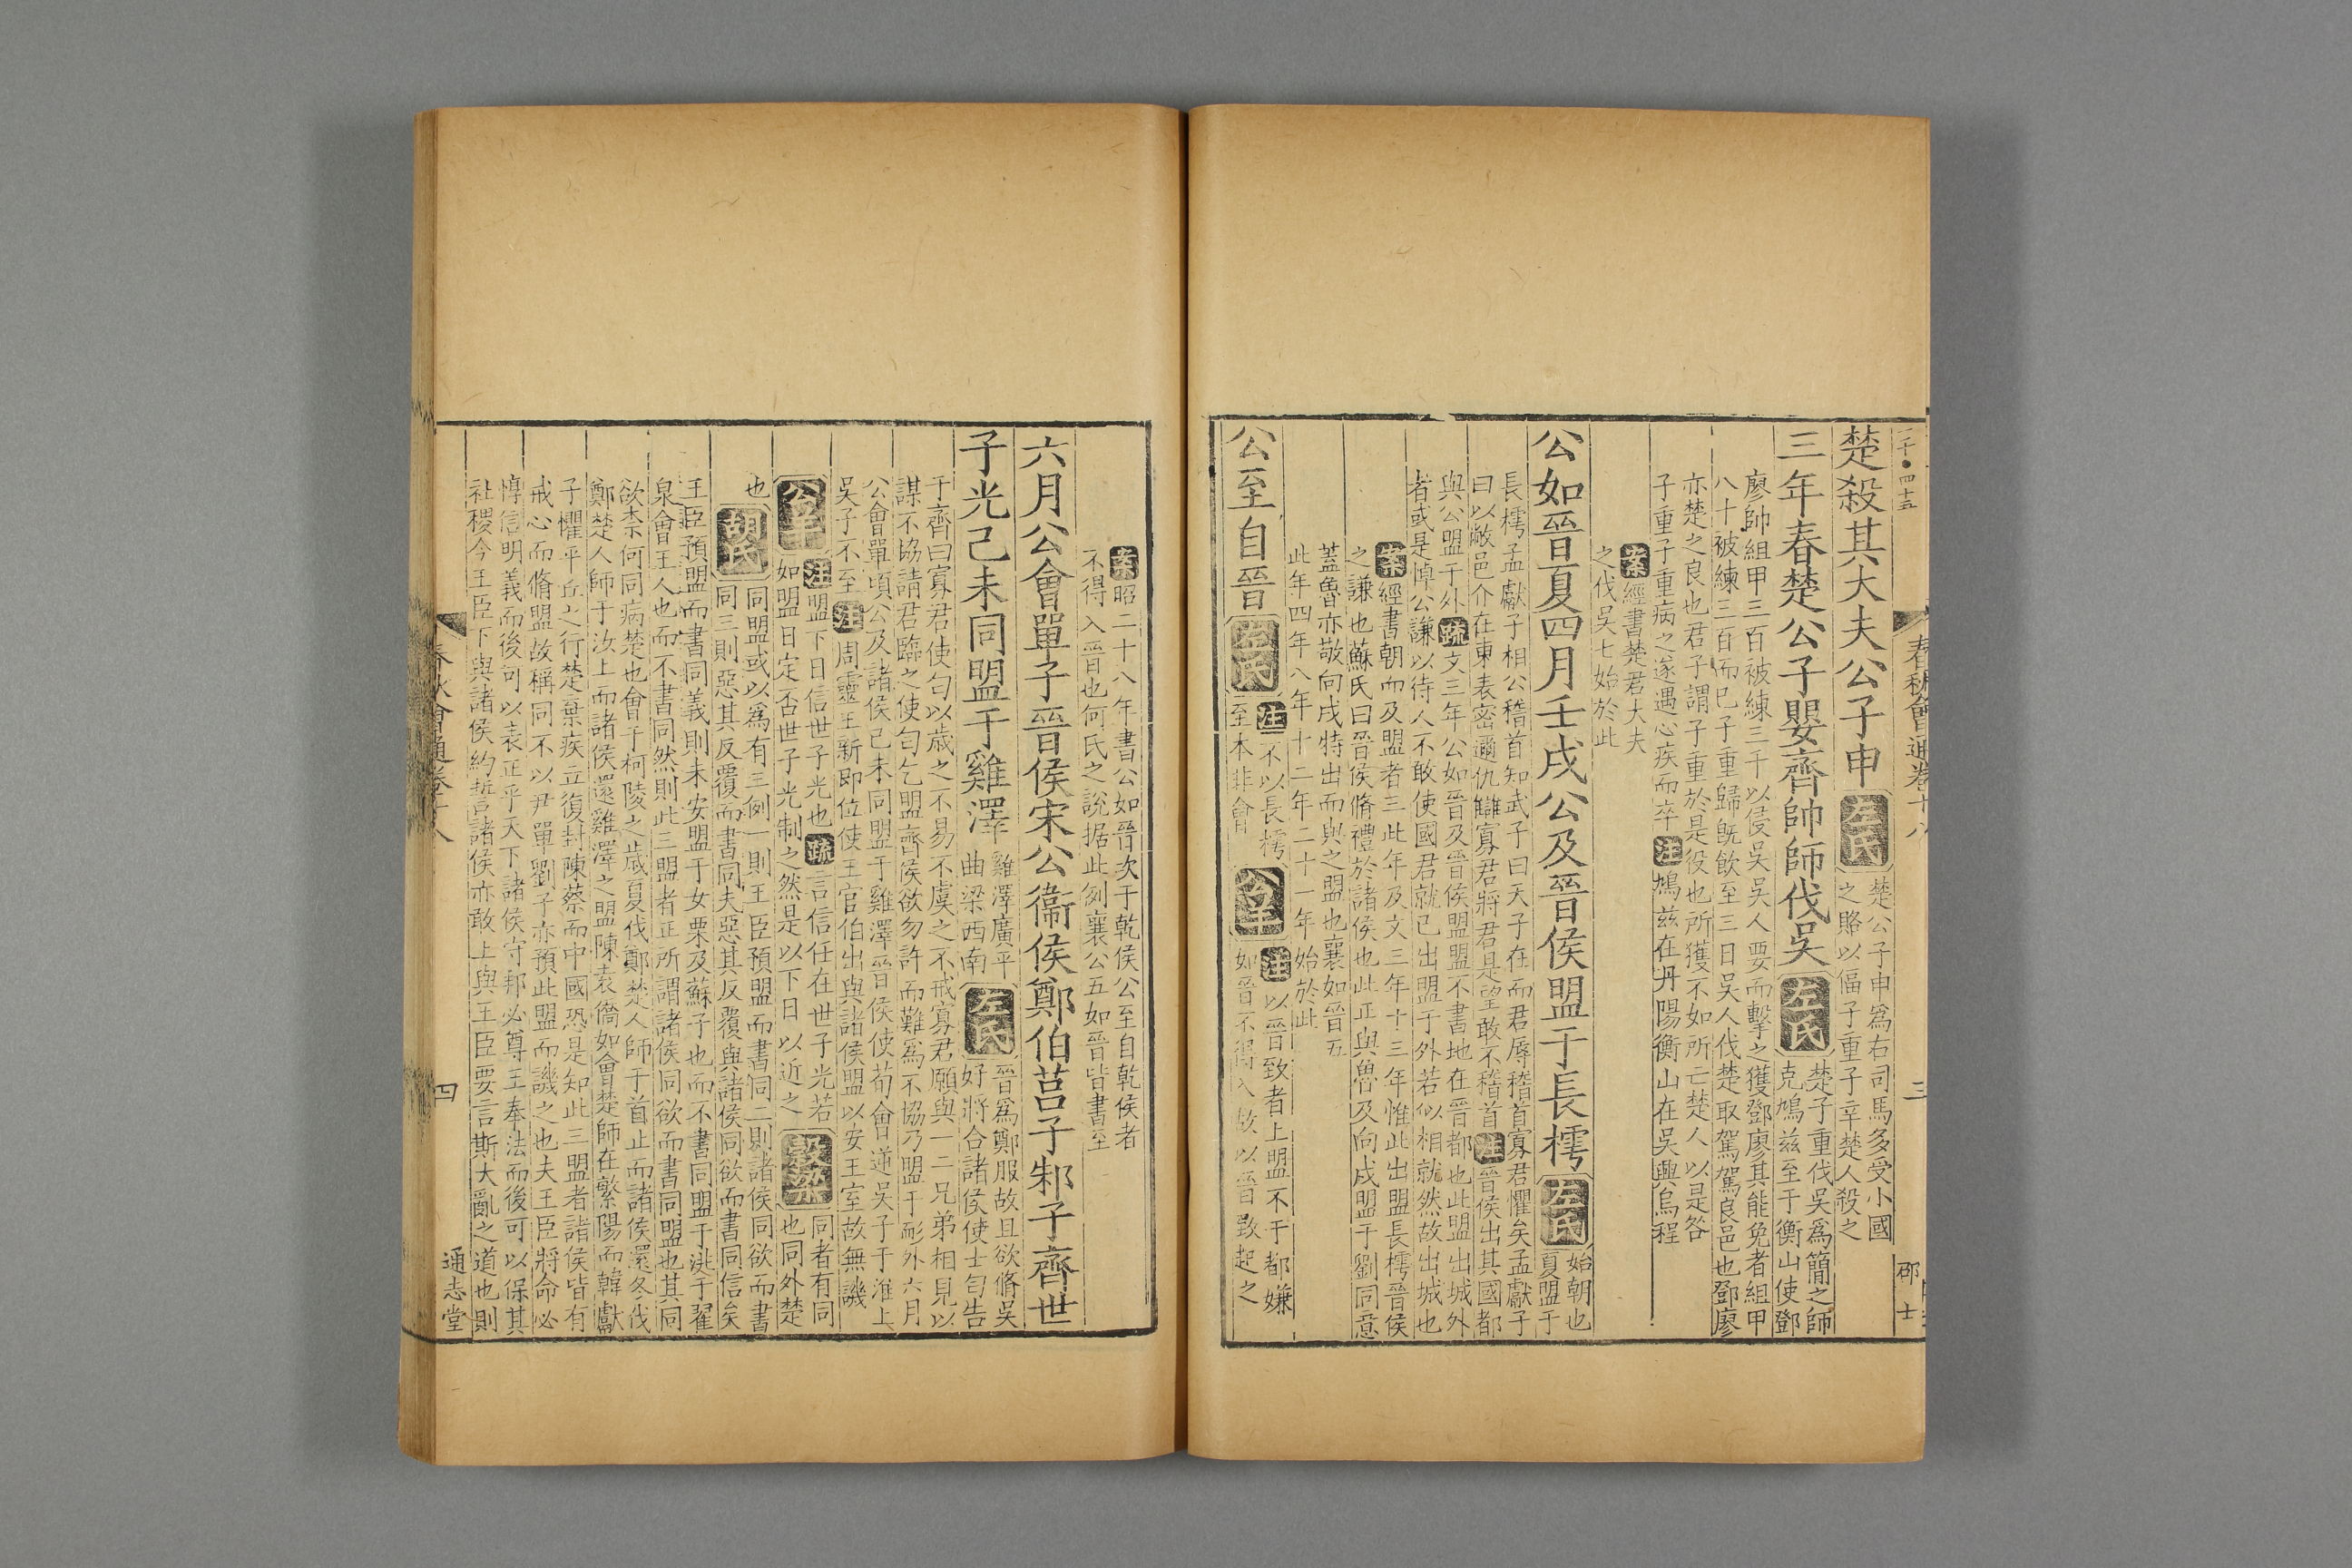 千·四十五
春秋會通卷十八
三
郘
士
楚殺其大夫公子申 左氏 楚公子申爲右司馬多受小國
之賂以偪子重子辛楚人殺之
三年春楚公子嬰齊帥師伐吳 左氏 楚子重伐吳爲簡之師
克鳩兹至于衡山使鄧
廖帥組甲三百被練三千以侵吳吳人要而擊之獲鄧廖其能免者組甲
八十被練三百而已子重歸旣飮至三日吳人伐楚取駕駕良邑也鄧廖
亦楚之良也君子謂子重於是役也所獲不如所亡楚人以是咎
子重子重病之遂遇心疾而卒 注 鳩兹在丹陽衡山在吳興烏程
案 經書楚君大夫
之伐吳七始於此
公如晉夏四月壬戌公及晉侯盟于長樗 左氏 始朝也
夏盟于
長樗孟獻子相公稽首知武子曰天子在而君辱稽首寡君懼矣孟獻子
曰以敝邑介在東表密邇仇讎寡君將君是望敢不稽首 注 晉侯出其國都
與公盟于外 疏 文三年公如晉及晉侯盟盟不書地在晉都也此盟出城外
者或是悼公謙以待人不敢使國君就己出盟于外若似相就然故出城也
案 經書朝而及盟者三此年及文三年十三年惟此出盟長樗晉侯
之謙也蘇氏曰晉侯脩禮於諸侯也此正與魯及向戌盟于劉同意
蓋魯亦敬向戌特出而與之盟也襄如晉五
此年四年八年十二年二十一年始於此
公至自晉 左氏 注 不以長樗
至本非會 公羊 注 以晉致者上盟不于都嫌
如晉不得入故以晉致起之
案 昭二十八年書公如晉次于乾侯公至自乾侯者
不得入晉也何氏之說据此例襄公五如晉皆書至
六月公會單子晉侯宋公衞侯鄭伯莒子邾子齊世
子光己未同盟于雞澤 雞澤廣平
曲梁西南 左氏 晉爲鄭服故且欲脩吳
好將合諸侯使士匄告
于齊曰寡君使匄以歲之不易不虞之不戒寡君願與一二兄弟相見以
謀不協請君臨之使匄乞盟齊侯欲勿許而難爲不協乃盟于耏外六月
公會單頃公及諸侯己未同盟于雞澤晉侯使荀會逆吳子于淮上
吳子不至 注 周靈王新卽位使王官伯出與諸侯盟以安王室故無譏
公羊 注 盟下日信世子光也 疏 言信任在世子光若
如盟日定否世子光制之然是以下日以近之 穀梁 同者有同
也同外楚
也 胡氏 同盟或以爲有三例一則王臣預盟而書同二則諸侯同欲而書
同三則惡其反覆而書同夫惡其反覆與諸侯同欲而書同信矣
王臣預盟而書同義則未安盟于女栗及蘇子也而不書同盟于洮于翟
泉會王人也而不書同然則此三盟者正所謂諸侯同欲而書同盟也其同
欲柰何同病楚也會于柯陵之歲夏伐鄭楚人師于首止而諸侯還冬伐
鄭楚人師于汝上而諸侯還雞澤之盟陳袁僑如會楚師在繁陽而韓獻
子懼平丘之行楚棄疾立復封陳蔡而中國恐是知此三盟者諸侯皆有
戒心而脩盟故稱同不以尹單劉子亦預此盟而譏之也夫王臣將命必
惇信明義而後可以表正乎天下諸侯守邦必尊王奉法而後可以保其
社稷今王臣下與諸侯約誓諸侯亦敢上與王臣要言斯大亂之道也則
春秋會通卷十八
四
通志堂